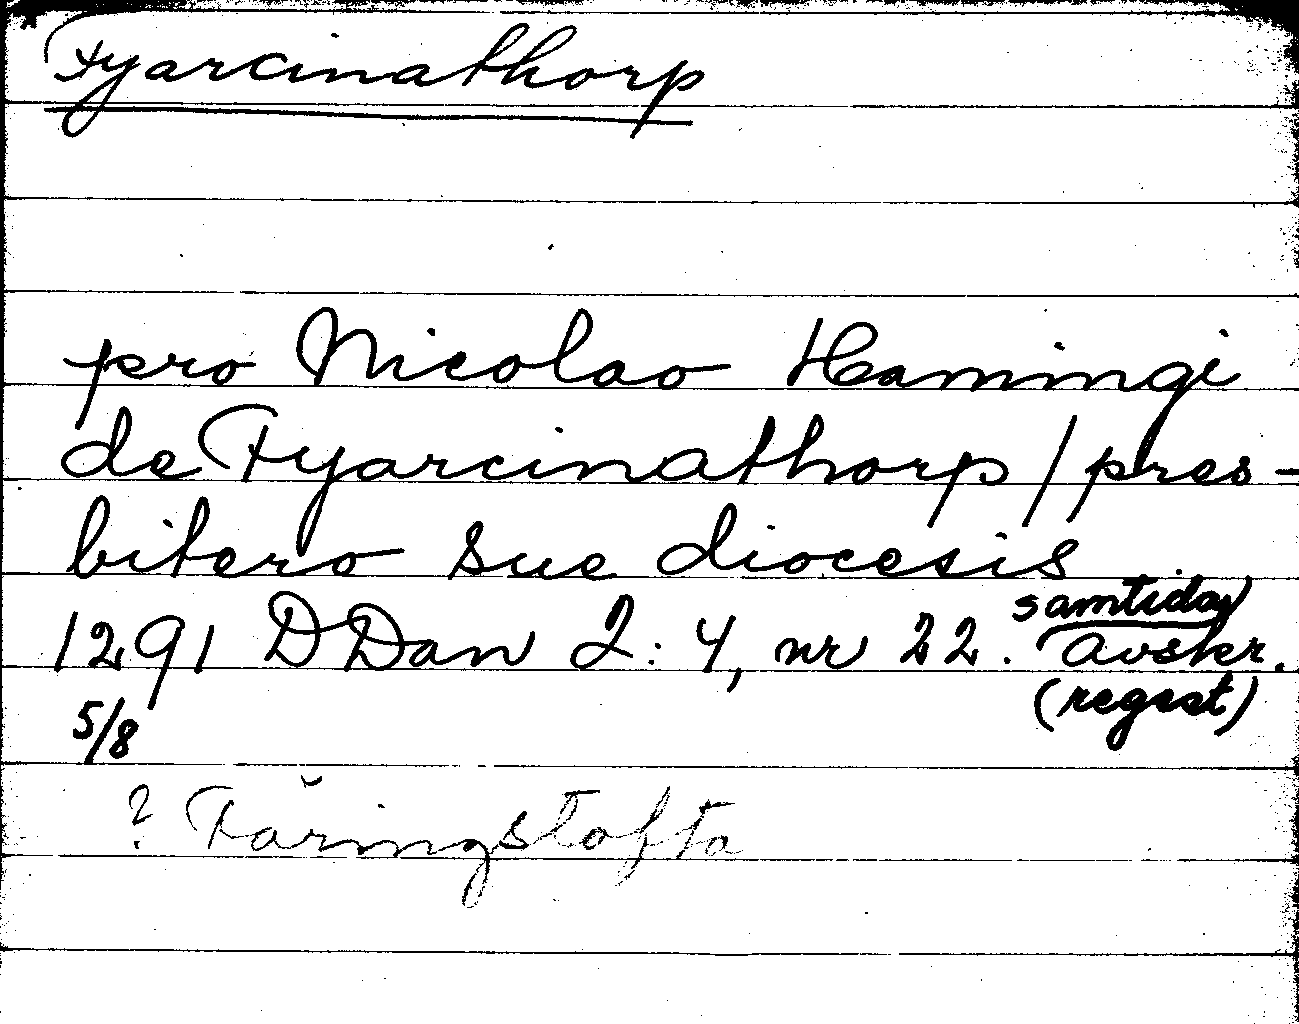 Fyarcinathorp
pro Nicolao Hemmingi
de Fyarcinathorp / pres-
bitero sue diocesis
samtiday
1291 DDan 2:4, nr 22. Avskr.
5/8 (regest)
? Färingstofta